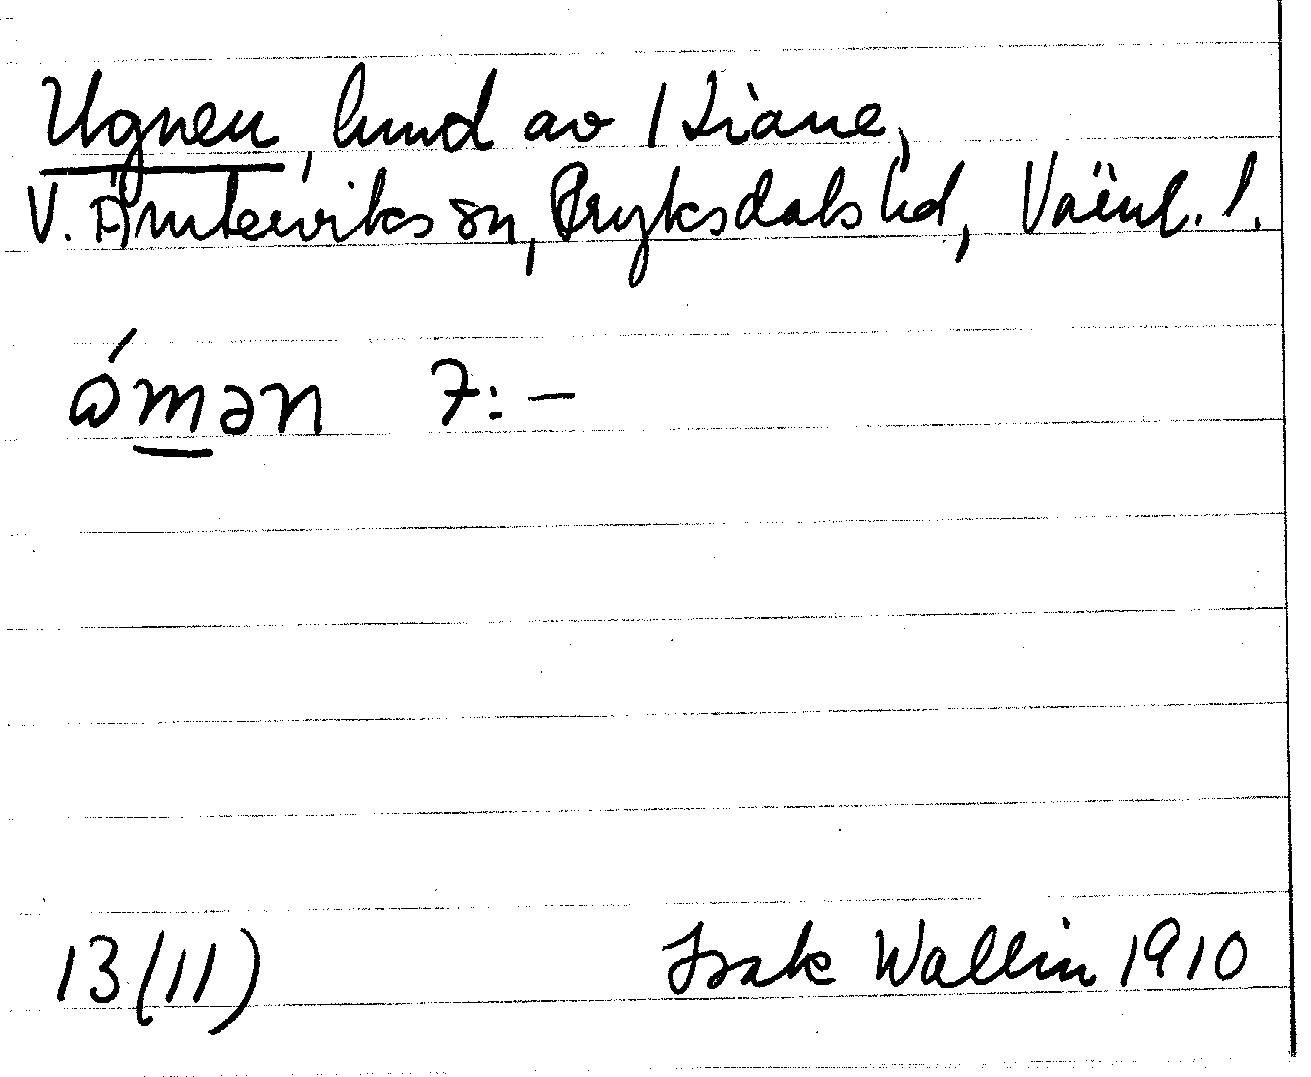 Ugnen, lund av 1 Diane,
V. Ämterviks sn, Fryksdals hd, Värml. l.
ώ́mən 7:-
13(11) Isak Wallin 1910